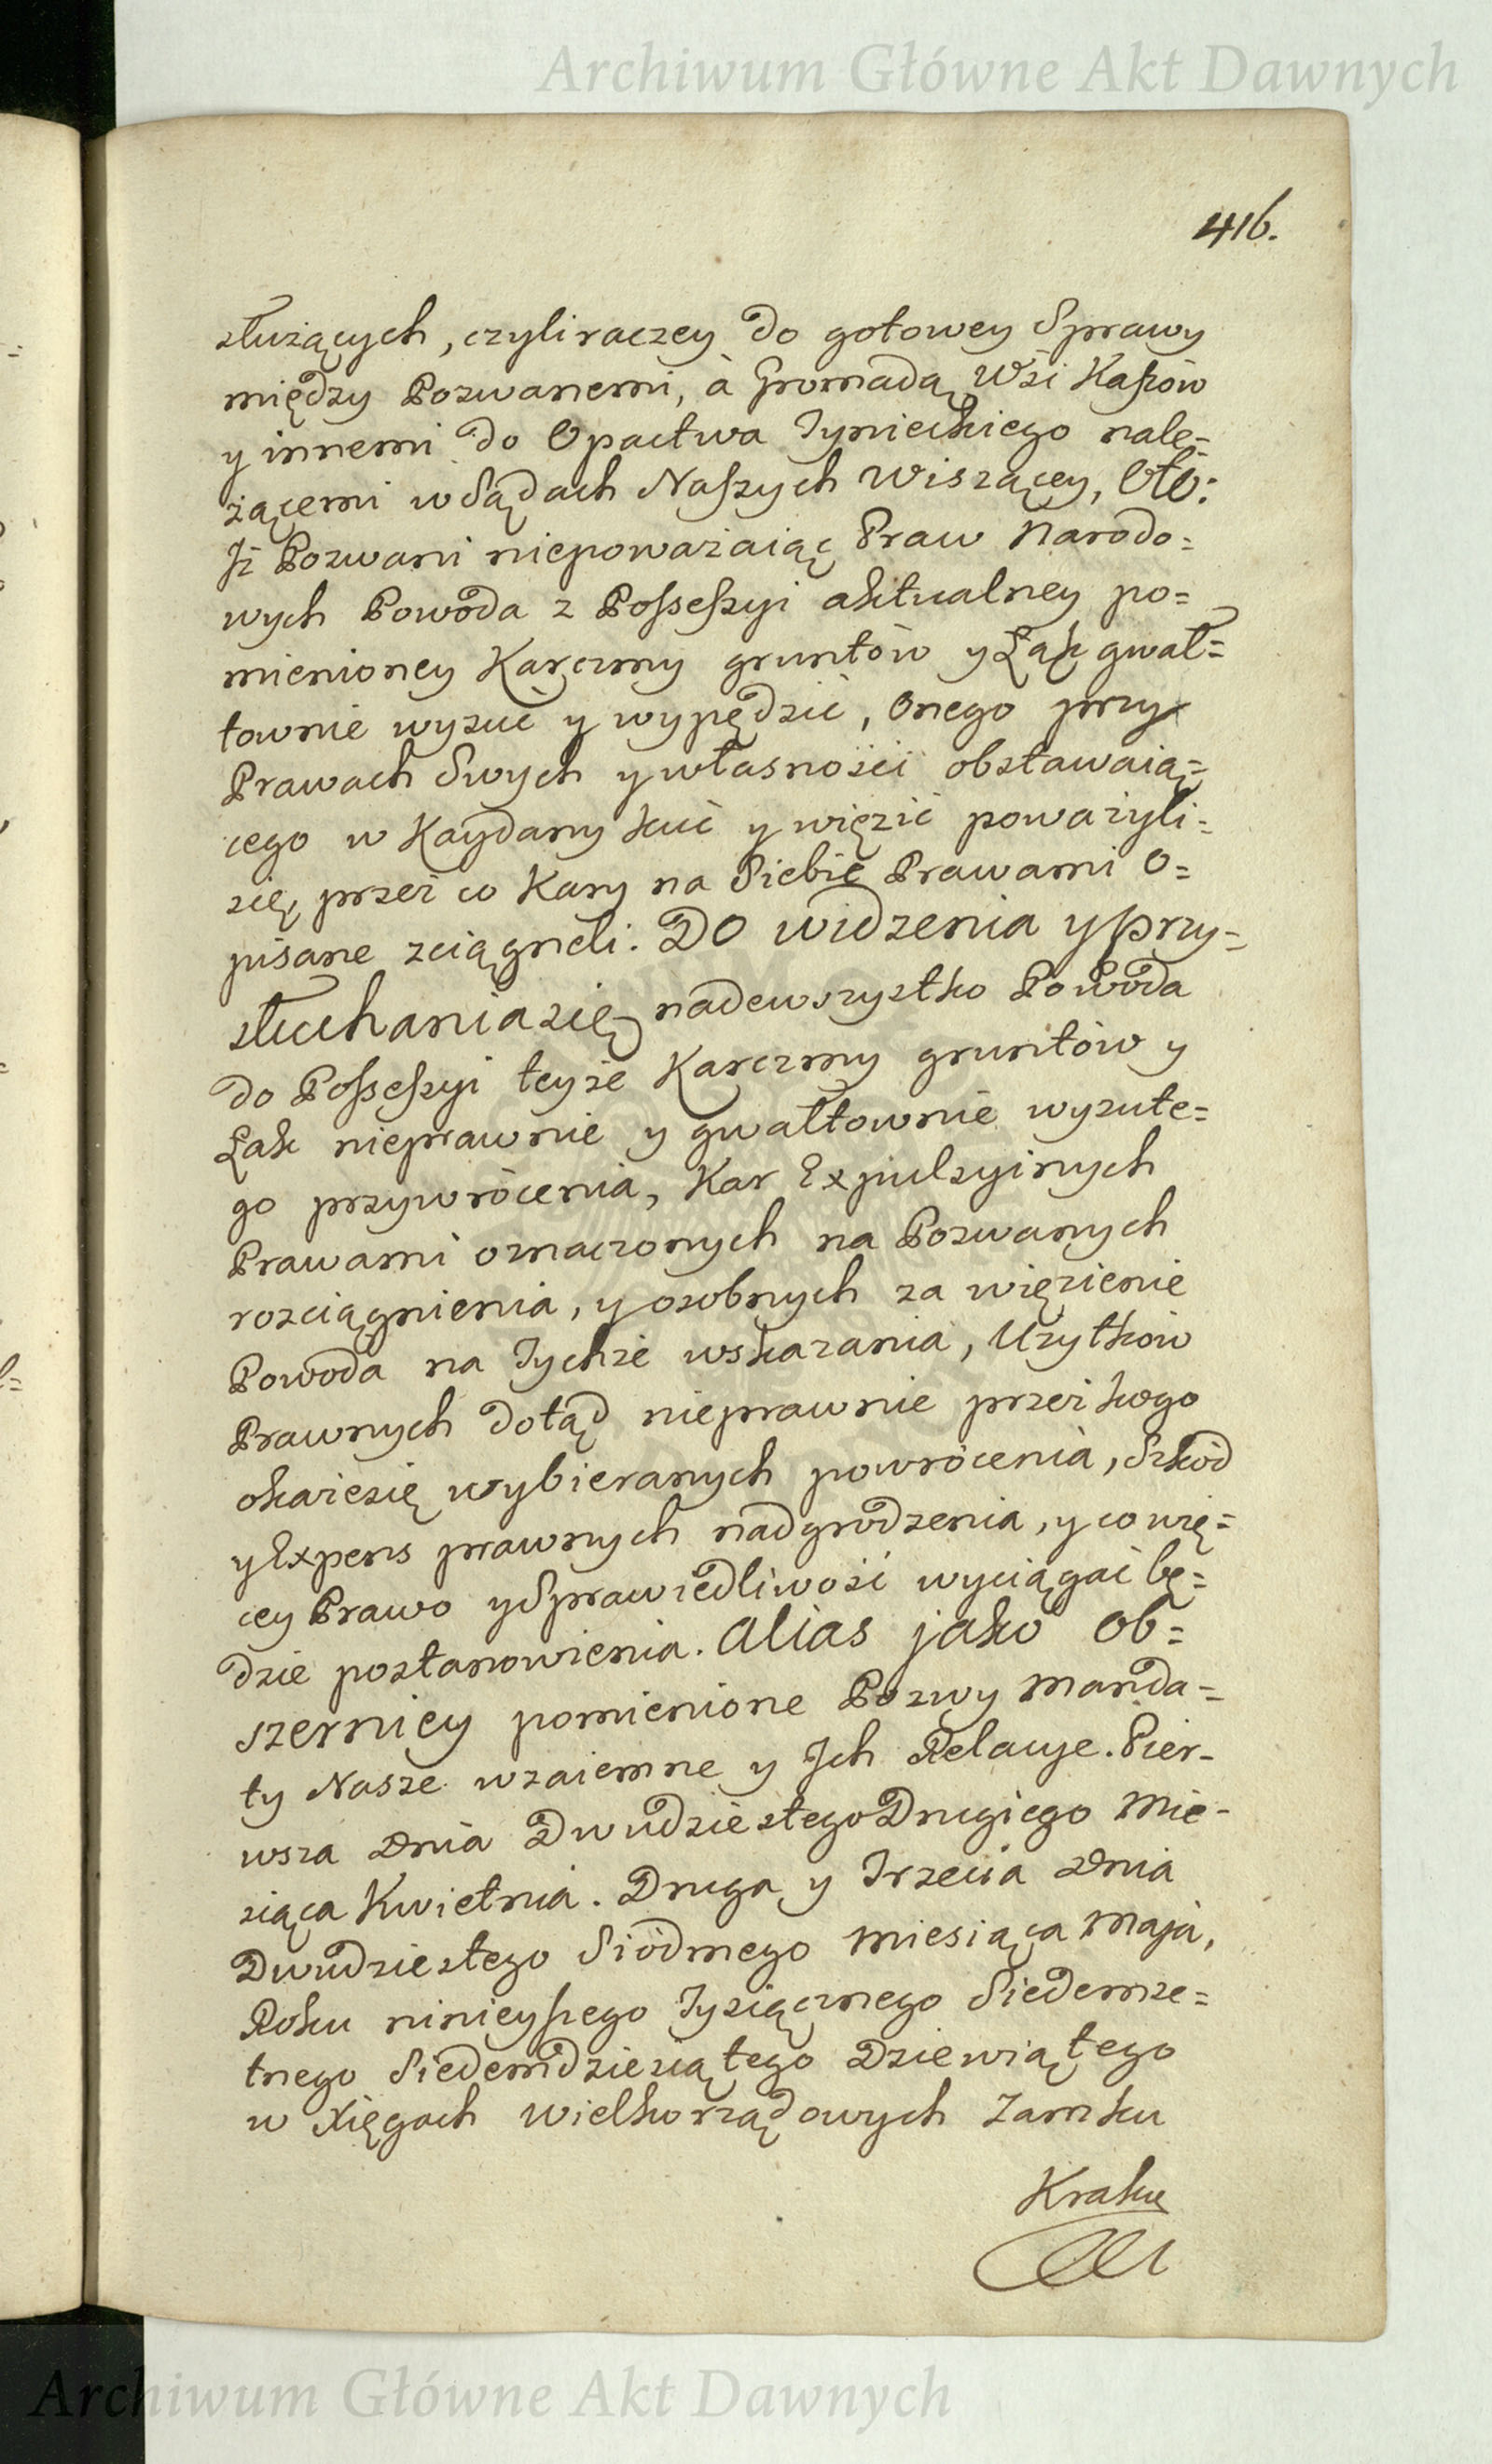 Archiwum Główne Akt Dawnych
416.
służących, czyli raczey do gotowey Sprawy
między Pozwanemi, à Gromadą Wśi Kaszow
y innemi do Opactwa Tynieckiego nale=
żącemi w Sądach Naszych Wiszącey, Oto:
Jż Pozwani niepoważaiąc Praw Narodo=
wych Powoda z Possessyi aktualney po=
mienioney Karczmy gruntów y Łąk gwał=
townie wyzuć y wypędzić, Onego przy
Prawach Swych y własnośći obstawaią=
cego w Kaydany kuć y więzić poważyli=
się, przeż co Kary na Siebie Prawami o=
pisane zciągneli. Do widzenia y przy=
słuchania się nadewszystko Powoda
do Possessyi teyże Karczmy gruntów y
Łąk nieprawnie y gwałtownie wyzute=
go przywrócenia, Kar Expulsyinych
Prawami oznaczonych na Pozwanych
rozciągnienia, y osobnych za więzienie
Powoda na Tychże wskazania, Użytków
Prawnych dotąd nieprawnie przeż kogo
okaże się wybieranych powrócenia, Szkód
y Expens prawnych nadgrodzenia, y co wię=
cey Prawo y Sprawiedliwość wyciągać bę=
dzie postanowienia. Alias jako ob=
szerniey pomienione Pozwy Manda=
ty Nasze wzaiemne y Jch Relacye. Pier-
wsza Dnia Dwudziestego Drugiego Mie-
siąca Kwietnia. Druga y Trzecia Dnia
Dwudziestego Siódmego Miesiąca Maja,
Roku ninieyszego Tysiącznego Siedemse=
tnego Siedemdziesiątego Dziewiątego
w Xięgach Wielkorządowych Zamku
Archiwum Główne Akt Dawnych